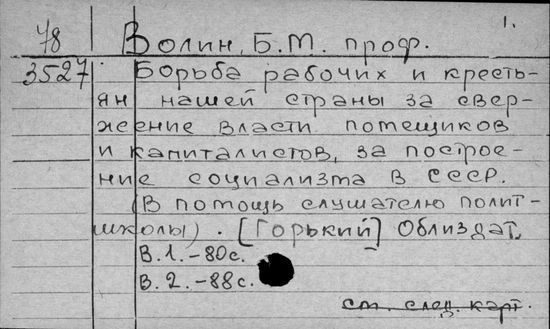 1.
78 Волин, Б.М. проф.
3527 Борьба рабочих и кресть-
ян нашей страны за свер-
жение власти помещиков
и капиталистов, за построе-
ние социализма в СССР.
(В помощь слушателю полит-
школы). [Горький] Облиздат,
В.1.-80с.
В.2.-88с.
см. след. карт.